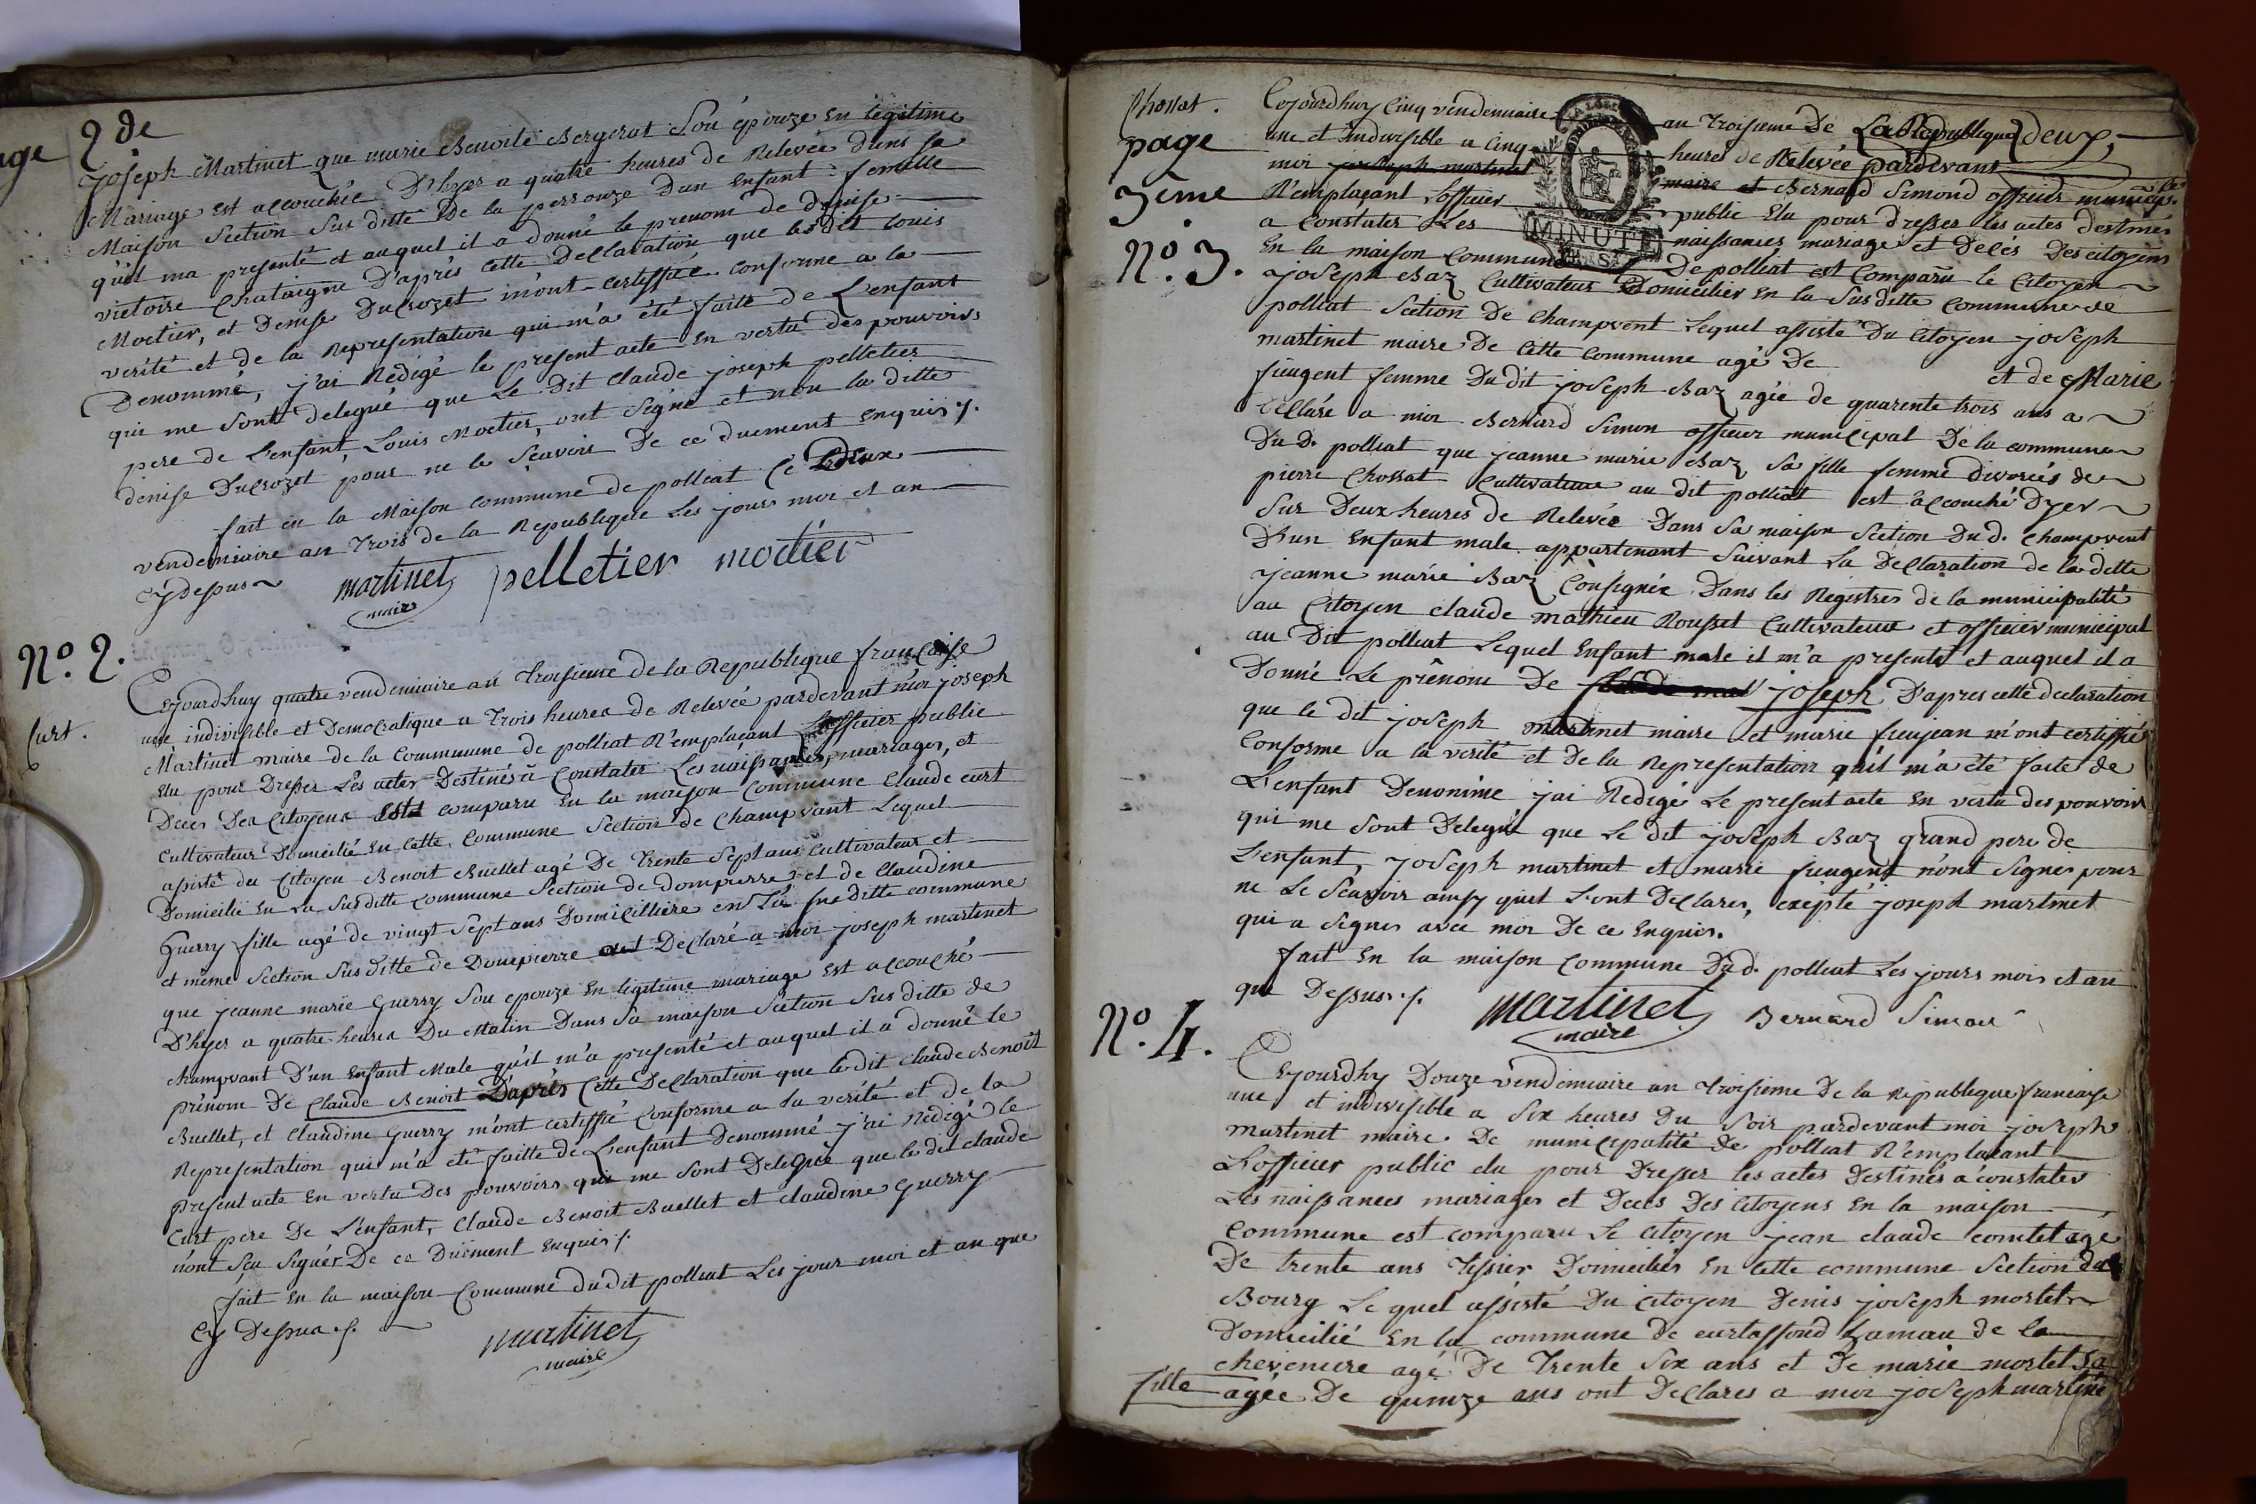 page 2de
joseph Martinet que marie Benoite Bergerat son épouze En legitime
Mariage est accouchée D'hyer a quatre heures de Relevée dans sa
Maison Section Sus ditte De la perrouze d'un Enfant femelle
qu'il ma presenté et auquel il a donné le prenom de denise
victoire Chataigne D'après Cette Declaration que les dit Louis
Moctier, et Denise Ducrozet m'ont certiffiée conforme a la
verité et de la Representation qui m'a été faite de L'enfant
Denommé, j'ai Rédigé le present acte En vertu des pouvoirs
qui me sont delegué que Le Dit Claude joseph pelletier
pere de L'enfant, Louis Moctier, ont Signé et non la ditte
denise Ducrozet pour ne le sçavoir De ce duement enquis /.
fait en la Maison commune de polliat Ce deux
vendemiaire an trois de la Republique Les jours moi et an
cy dessus
martinet pelletier moctier
maire
No. 2.
Curt.
Cejourdhuy quatre vendemiaire an troisieme de la Republique française
une indivisible et Democratique a trois heures de Relevée pardevant moi joseph
Martinet maire de la Commune de polliat R'emplaçant L'officier public
Elu pour Dresser Les actes Destinés a Constater Les naissances, mariages, et
Deces Des Citoyens est comparu En la maison Commune Claude curt
Cultivateur Domicilié En Cette Commune Section de Champvant Lequel
assisté du Citoyen Benoit Buellet agé De trente Sept ans Cultivateur et
Domicilié En La Sus ditte commune Section de dompierre et de Claudine
Guerry fille agé de vingt Sept ans Domicilliere en La sus Ditte commune
et même Section Sus ditte de Dompierre ont Declaré a moi joseph martinet
que jeanne marie Guerry Son epouze En legitime mariage Est accouché
D'hyer a quatre heures Du Matin Dans Sa maison Section Sus ditte de
champvant D'un Enfant Male qu'il m'a presenté et auquel il a donné le
prénom De Claude Benoit D'après Cette Declaration que le dit Claude Benoit
Buellet, et Claudine Guerry m'ont certiffié Conforme a La verité et de la
Representation qui m'a eté faitte de L'enfant Denommé j'ai Rédigé le
present acte En vertu Des pouvoirs qui me Sont Delegué que le dit claude
Curt pere De L'enfant, Claude Benoit Buellet et Claudine Guerry
n'ont Sçu Signér De ce Duement Enquis /.
fait En la maison Commune du dit polliat Les jour moi et an que
Cy Dessus ./.
martinet
maire
Chossat.
page
3eme
No. 3.
Cejourdhuy Cinq vendemiaire an troisieme De La Republique
une et indivisible a Cinq heures de Relevée pardevant
moi joseph martinet maire et Bernard Simond officier municip.
R'emplaçant L'officier public Elu pour dresser les actes destinés
a Constater Les naissances mariage et Deces Des citoyens
MINUTE
En la maison Commune De polliat est Comparu le Citoyen
joseph Baz Cultivateur Domicilier En la Susditte Commune de
polliat Section De Champvent Lequel assisté Du Citoyen joseph
martinet maire De Cette Commune agé De et de Marie
fieugent femme Du dit joseph Baz agée de quarente trois ans a
Declaré a moi Bernard Simon officier municipal De la commune
Du D. polliat que jeanne marie Baz Sa fille femme divorcés de
pierre Chossat Cultivateur au dit polliat est accouché Dyer
Sur Deux heures de Relevée Dans Sa maison Section Du D. Champvent
D'un Enfant male appartenant Suivant La Declaration de la ditte
jeanne marie Baz Consignée Dans les Régistres de la municipalité
au Citoyen claude mathieu Rousset Cultivateur et officier municipal
au Dit polliat Lequel Enfant male il m'a presenté et auquel il a
Donné Le prênom De joseph D'apres cette declaration
que le dit joseph martinet maire et marie fieujean m'ont certiffiés
Conforme a la verité et De la Representation qu'il m'a été faite de
L'enfant Denommé j'ai Redigé Le present acte En vertu des pouvoir
qui me Sont Delegué que Le dit joseph Baz grand pere de
L'enfant, joseph martinet et marie fieugent n'ont Signer pour
ne Le Sçavoir ainsy quil L'ont Declarer, exépté joseph martinet
qui a Signer avec moi De ce Enquis.
fait En la maison Commune Du d. polliat Les jours mois et an
que Dessus ./.
Martinet Bernard Simon
maire
No. 4.
Cejourdhy Douze vendemiaire an troisieme De la Republique francaise
une et indivisible a Six heures Du Soir pardevant moi joseph
martinet maire De municipalité De polliat R'emplacant
L'officier public elu pour Dresser les actes Destinés a constater
Les naissances mariages et Deces Des Citoyens En la maison
Commune est comparu Le Citoyen jean claude comtet agé
De trente ans tissier Domiciliér En Cette commune Section du
Bourg Le quel assisté Du Citoyen Denis joseph mortel
Domicilié En la commune De curtaffond hamau de la
chevenure agé De trente Six ans et De marie mortel Sa
fille agée De quinze ans ont Declares a moi joseph martine